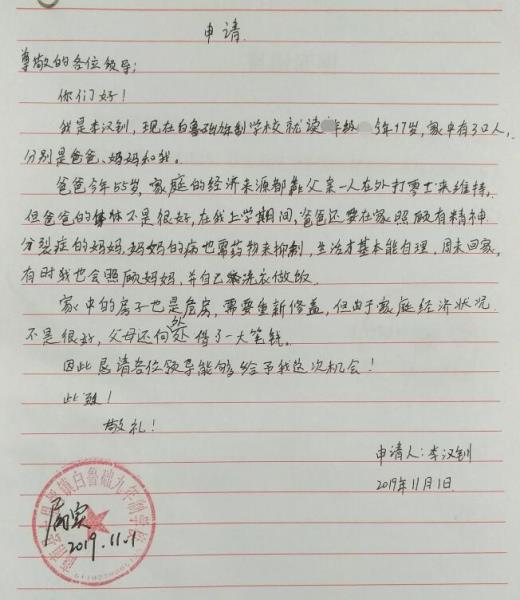 申请
尊敬的各位领导：
你们好！
我是李汉钊，现在白鲁础九年制学校就读 年级 今年17岁，家中有3口人，
分别是爸爸、妈妈和我。
爸爸今年55岁，家庭的经济来源都靠父亲一人在外打零工来维持，
但爸爸的身体不是很好，在我上学期间，爸爸还要在家照顾有精神
分裂症的妈妈，妈妈的病也需药物来抑制，生活才基本能自理，周末回家，
有时我也会照顾妈妈，并自己洗衣做饭。
家中的房子也是危房，需要重新修盖，但由于家庭经济状况
不是很好，父母还向外处借了一大笔钱。
因此恳请各位领导能够给予我这次机会！
此致！
敬礼！
申请人：李汉钊
2019年11月1日
镇白鲁础九年制学校
属实
2019.11.1